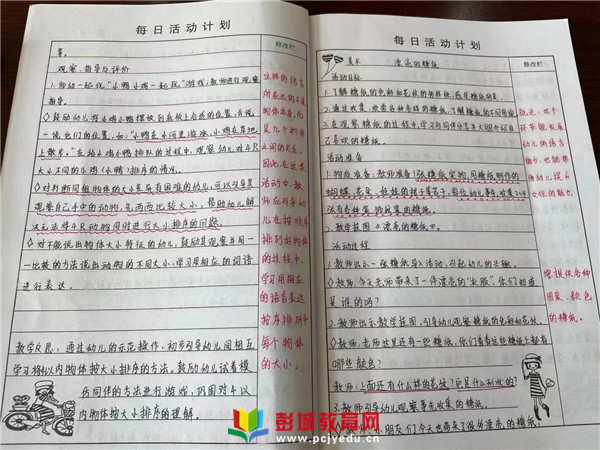 每日活动计划
修改栏
景。
观察、指导与评价
1.幼幼一起玩“小鸭小鸡一起玩”游戏,教师进行观察
指导。
◇鼓励幼儿将小鸡小鸭摆放到底板上合适的位置,并说一
说出它们的位置,如:“小鸭在小河里游泳,小鸡在草地
上散步。”在给小鸡小鸭排队的过程中,观察幼儿对4只
大小不同的小鸡(小鸭)排序的情况。
◇对判断同组物体的大小差异有困难的幼儿,可以引导其
观察自己手中的动物,
比较大小,帮助幼儿解
决无法将4只动物同时进行大小排序的问题。
◇对不能说出物体大小特征的幼儿,鼓励其观察并用一
一比较的方法说出动物的不同大小,学习用相应的词语
进行表达。
教学反思:通过幼儿的示范操作,初步引导幼儿间相互
学习将4以内物体按大小排序的方法。鼓励幼儿试着模
仿同伴的方法进行游戏,巩固对4以
内物体按大小排序的理解。
这样的语言
所表达的不是
物体本身,而
是几个物体
之间的关系。
因此,在这类
活动中,教
师应引导幼
儿在按顺序
排列好物体
的过程中,
学习用相应
的语言表达
按序排列中
每个物体
的大小。
每日活动计划
修改栏
美术
漂亮的糖纸
活动目标
1.了解糖纸的色彩和花纹的
2.通过收集、欣赏各种各样的糖纸,了解糖纸的不同用途
3.在观察糖纸的过程中,学习与同伴分享并大胆介绍自
己喜欢的糖纸。
活动准备
1.物质准备:教师收集1张糖纸实物,用糖纸制作的
蝴蝶、花朵、娃娃的裙子等若干,每位幼儿事先收集3~4
张有各种花纹的糖果的糖纸。
2.教学挂图《漂亮的糖纸》。
活动过程
1.教师出示一张糖纸导入活动,引起幼儿的兴趣。
◇教师:今天老师带来了一件漂亮的“衣服”,你们知道
是谁的吗?
2.教师出示教学挂图,引导幼儿观察糖纸的色彩和花纹。
◇教师:老师这里还有一些糖纸,你们看看这些糖纸上都有
哪些颜色?
教师:上面还有什么样的花纹?它是什么形状的?
3.教师引导幼儿观察事先收集的糖纸。
◇教师:小朋友们今天也带来了很多漂亮的糖纸。
环节能发展
幼儿的语言
增提供各种
图案、颜色
的糖纸。
彭城教育网
www.pcjyedu.cn